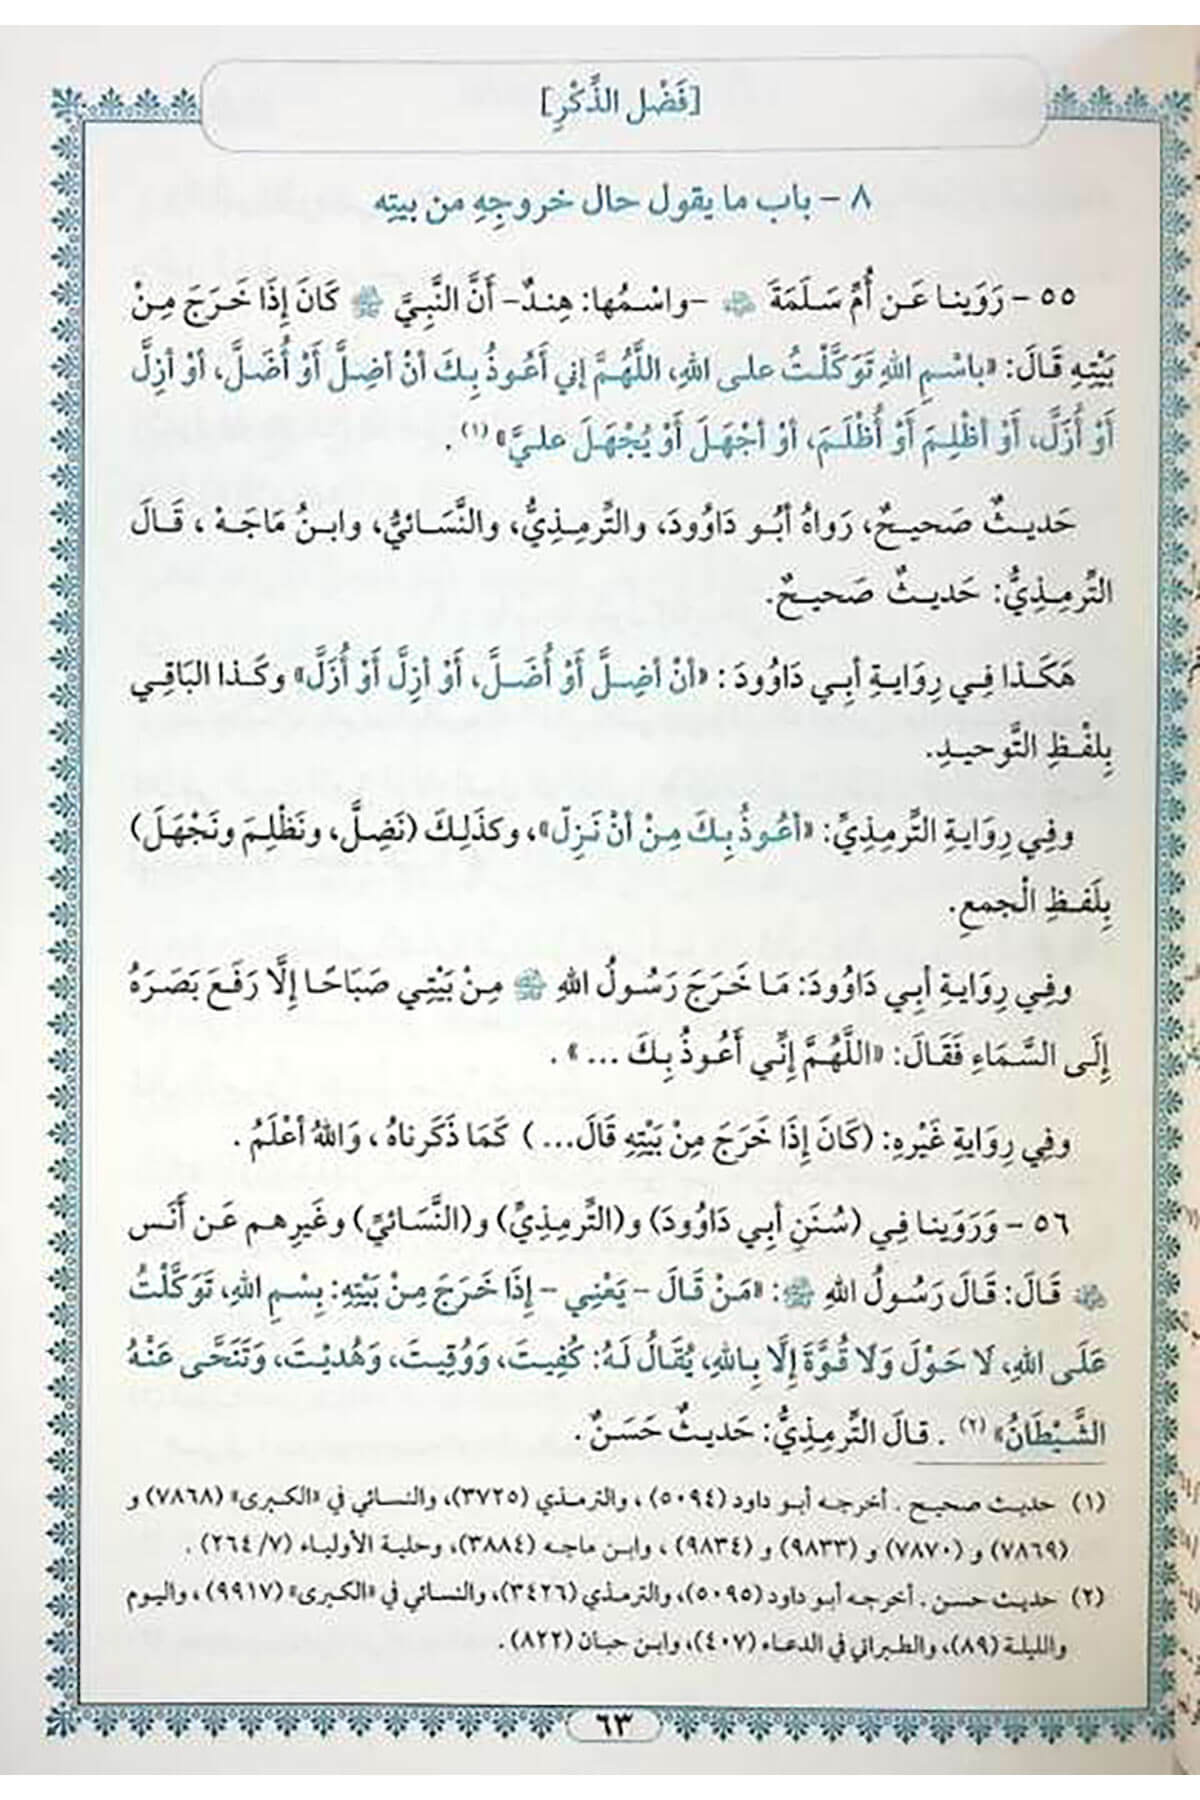 [فَضْل الذِّكْرِ]
٨ - باب ما يقول حال خروجِهِ من بيتِه
٥٥ - رَوَينا عَن أُمِّ سَلَمَةَ ﵂ -واسْمُها: هِندٌ- أَنَّ النَّبِيَّ ﷺ كَانَ إِذَا خَرَجَ مِنْ
بَيْتِهِ قَالَ: «باسْمِ اللهِ تَوَكَّلْتُ على اللهِ، اللَّهُمَّ إني أَعُوذُ بِكَ أنْ أضِلَّ أَوْ أُضَلَّ، أوْ أزِلَّ
أَوْ أُزَلَّ، أَوْ أظْلِمَ أَوْ أُظْلَمَ، أوْ أجْهَلَ أَوْ يُجْهَلَ عليَّ» (١) .
حَديثٌ صَحيحٌ، رَواهُ أبُو دَاوُودَ، والتِّرمِذيُّ، والنَّسَائيُّ، وابنُ مَاجَهْ ، قَالَ
التِّرمِذيُّ: حَديثٌ صَحيحٌ.
هَكَذا فِي رِوَايةِ أبي دَاوُودَ: «أنْ أضِلَّ أَوْ أُضَلَّ، أَوْ أزِلَّ أَوْ أُزَلَّ» وكَذا البَاقِي
بِلفْظِ التَّوحيدِ.
وفِي رِوَايةِ التِّرمِذيِّ: «أعُوذُ بِكَ مِنْ أنْ نَزِلّ»، وكذَلِكَ (نَضِلَّ، ونَظْلِمَ ونَجْهَلَ)
بِلَفظِ الْجمعِ.
وفِي رِوَايةِ أبي دَاوُودَ: مَا خَرَجَ رَسُولُ اللهِ ﷺ مِنْ بَيْتِي صَبَاحًا إلَّا رَفَعَ بَصَرَهُ
إِلَى السَّمَاءِ فَقَالَ: «اللَّهُمَّ إِنِّي أَعُوذُ بِكَ ...» .
وفِي رِوَايةِ غَيْرِهِ: (كَانَ إِذَا خَرَجَ مِنْ بَيْتِهِ قَالَ... ) كَمَا ذَكَرناهُ ، وَاللهُ أعْلَمُ .
٥٦ - وَرَوَينا فِي (سُنَنِ أبي دَاوُودَ) و(التِّرمِذيِّ) و(النَّسَائيِّ) وغَيرِهم عَن أَنَس
﵁ قَالَ: قَالَ رَسُولُ اللهِ ﷺ: «مَنْ قَالَ - يَعْنِي - إِذَا خَرَجَ مِنْ بَيْتِهِ: بِسْمِ اللهِ، تَوَكَّلْتُ
عَلَى اللهِ، لَا حَوْلَ وَلَا قُوَّةَ إِلَّا بِاللهِ، يُقَالُ لَهُ: كُفِيتَ، وَوُقِيتَ، وَهُدِيْتَ، وَتَنَحَّى عَنْهُ
الشَّيْطَانُ» (٢) . قالَ التِّرمِذيُّ: حَديثٌ حَسَنٌ .
(١) حديث صحيح . أخرجه أبو داود (٥٠٩٤) ، والترمذي (٣٧٢٥)، والنسائي في «الكبرى» (٧٨٦٨) و
(٧٨٦٩) و (٧٨٧٠) و (٩٨٣٣) و (٩٨٣٤) ، وابن ماجه (٣٨٨٤)، وحلية الأولياء (٧/ ٢٦٤) .
(٢) حديث حسن . أخرجه أبو داود (٥٠٩٥)، والترمذي (٣٤٢٦)، والنسائي في «الكبرى» (٩٩١٧) ، واليوم
والليلة (٨٩)، والطبراني في الدعاء (٤٠٧)، وابن حبان (٨٢٢) .
٦٣